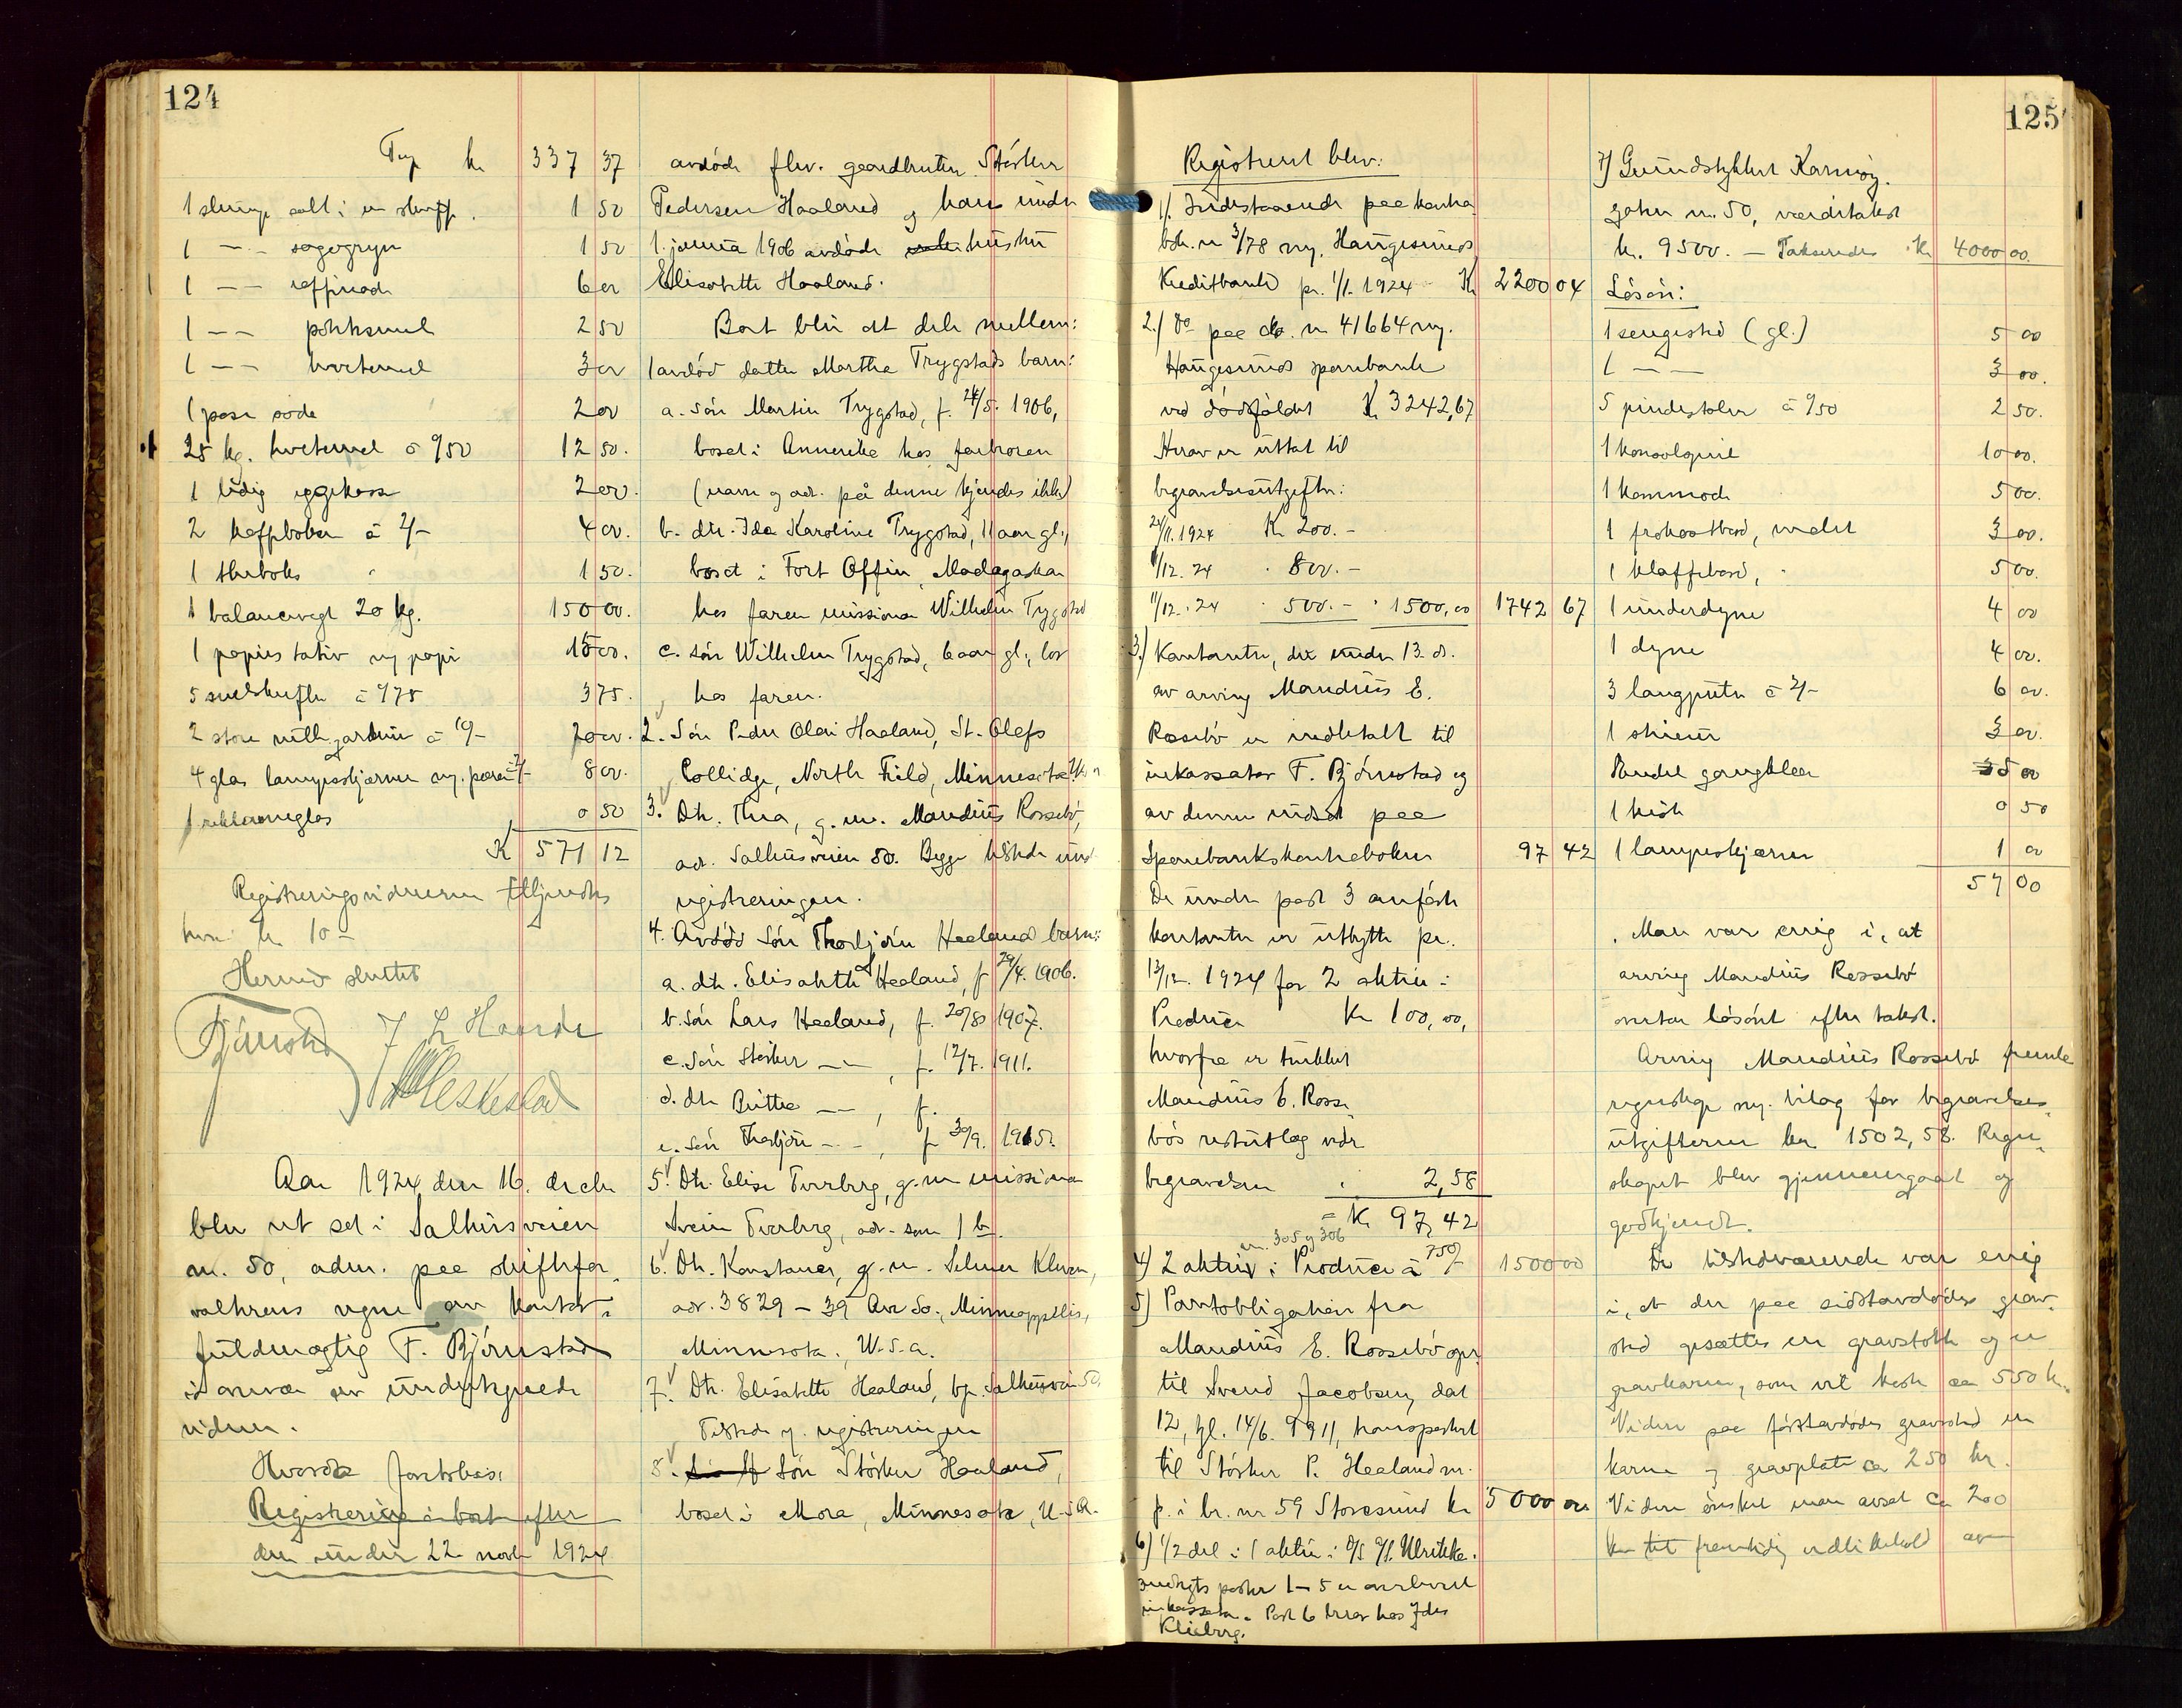 124
Trp kr 337 37
1 slump salt i en skuff. 1 50
1 —"— sagogryn 1 50
1 —"— raffinade 6 00
1 —"— potetmel 2 50
1 —"— hvetemel 3 00
1 pose soda 2 00
25 kg. hvetemel à %50 12 50.
1 ledig eggekasse 2 00.
2 kaffebokser à 2/- 4 00.
1 theboks 1 50.
1 balancevegt 20 kg. 150 00.
1 papirstativ m/ papir 15 00.
5 melskuffer à %75 3 75.
2 store rullegardiner à 10/- 20 00.
4 glas lampeskjærmer m/. pærer à 2/- 8 00.
1 reklameglas 0 50
Kr 571 12
Registreringsvidnerne tilkjendtes
hver kr 10 –
Hermed sluttet
Bjørnstad
Aar 1924 den 16. decbr
blev ret sat i Salhusveien
nr. 50, adm. paa skiftefor-
valterens vegne av kontor-
fuldmægtig F. Bjørnstad
i nærvær av undertegnede
vidner.
Hvorda foretokes:
Registrering i boet efter
den under 22 novbr 1924
avdøde fhv. gaardbruker Størker
Pedersen Haaland og hans under
1. januar 1906 avdøde hustru
Elisabeth Haaland.
Boet blir at dele mellem:
1 avdød datter Martha Trygstads barn:
a. søn Martin Trygstad, f. 24/5. 1906,
bosat i Amerika hos farbroren
(navn og adr. på denne kjendes ikke)
b. dtr. Ida Karoline Trygstad, 11 aar gl.,
bosat i Fort Offin, Madagaskar
hos faren missionær Wilhelm Trygstad
c. søn Wilhelm Trygstad, 6 aar gl., bor
hos faren.
2. Søn Peder Olai Haaland, St. Olefs
Collidge, North Field, Minnesota
3. Dtr. Thea, g. m. Maudius Rossebø,
adr. Salhusveien 50. Begge tilstede under
registreringen.
4. Avdød søn Thorbjørn Haaland barn:
a. dtr. Elisabeth Haaland, f 29/4. 1906.
b. søn Lars Haaland, f. 20/8 1907.
c. søn Størker —"— , f. 12/7. 1911.
d. dtr Brithe —"— , f.
e. søn Thorbjørn —"— , f 30/9. 1915.
5. Dtr. Elise Tverberg, g. m missionær
Svein Tverberg, adr. som 1 b.
6. Dtr. Konstance, g. m. Selmer Kleven,
adr. 3829 – 39 Ave So., Minneappolis,
Minnesota., U.S.A.
7. Dtr. Elisabeth Haaland, bp. Salhusvei 50.
Tilstede v. registreringen
8. Søn Størker Haaland,
bosat i Mora, Minnesota, U.S.A.
125
Registrert blev:
1/. Indestaaende paa kontra-
bok nr 3/78 m/. Haugesunds
Kreditbank pr. 1/1. 1924 Kr 2200 04
2./ do paa do. nr 41664 m/.
Haugesunds sparebank
ved dødsfaldet Kr 3242,67
Herav er uttat til
begravelsesutgifter:
24/11. 1924 Kr 200.–
1/12. 24 " 800.–
11/12. 24 " 500.– " 1500,00 1742 67
3./ Kontanter, der under 13. ds.
av arving Maudius E.
Rossebø er indbetalt til
inkassator F. Bjørnstad og
av denne indsat paa
Sparebankskontraboken 97 42
De under post 3 anførte
kontanter er utbytte pr.
13/12. 1924 for 2 aktier i
Producer Kr 100,00,
hvorfra er trukket
Maudius E. Rosse-
bøs restutlæg vedr
begravelsen " 2,58
= Kr 97,42
nr. 305 og 306
4) 2 aktier i Producer à 750/- 1500 00
5) Pantobligation fra
Maudius E. Rossebø opr.
til Svend Jacobsen, dat
12, tgl. 14/6. 1911, transportert
til Størker P. Haaland m.
p. i br. nr 59 Storesund kr 5000 00
6) 1/2 del i 1 aktie i D/S A/S. Ulrikke.
post 1–5 er overlevert
inkassator. Post 6 beror hos
7) Grundstykket Karmøy-
gaten nr. 50, værditakst
kr. 9500. – Takseredes Kr 4000 00.
Løsøre:
1 sengested (gl.) 5 00
1 —"— 3 00.
5 pindestoler à %50 2 50.
1 konsolspeil 10 00.
1 kommode 5 00.
1 frokostbord, malet 3 00.
1 klaffebord, " 5 00.
1 underdyne 4 00
1 dyne 4 00.
3 langputer à 2/- 6 00.
1 skrin 3 00.
Endel gangklær 5 00
1 kiste 0 50
1 lampeskjærm 1 00
57 00
Man var enig i, at
arving Maudius Rossebø
overtar løsøret efter takst.
Arving Maudius Rossebø fremla
regnskap m/. bilag for begravelses-
utgifterne kr. 1502,58. Regn-
skapet blev gjennemgaat og
godkjendt.
De tilstedeværende var enig
i, at der paa sidstavdødes grav-
sted opsættes en gravstøtte og en
gravkarm, som vil koste ca 550 kr.
Videre paa førstavdødes gravsted en
karm og gravplate ca 250 kr.
Videre ønsket man avsat ca 200
kr til fremtidig vedlikehold av